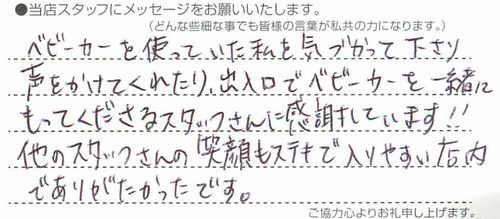 ●当店スタッフにメッセージをお願いいたします。
(どんな些細な事でも皆様の言葉が私共の力になります。)
ベビーカーを使っていた私を気づかって下さり
声をかけてくれたり、出入口でベビーカーを一緒に
もってくださるスタッフさんに感謝しています!!
他のスタッフさんの笑顔もステキで入りやすい店内
でありがたかったです。
ご協力心よりお礼申し上げます。